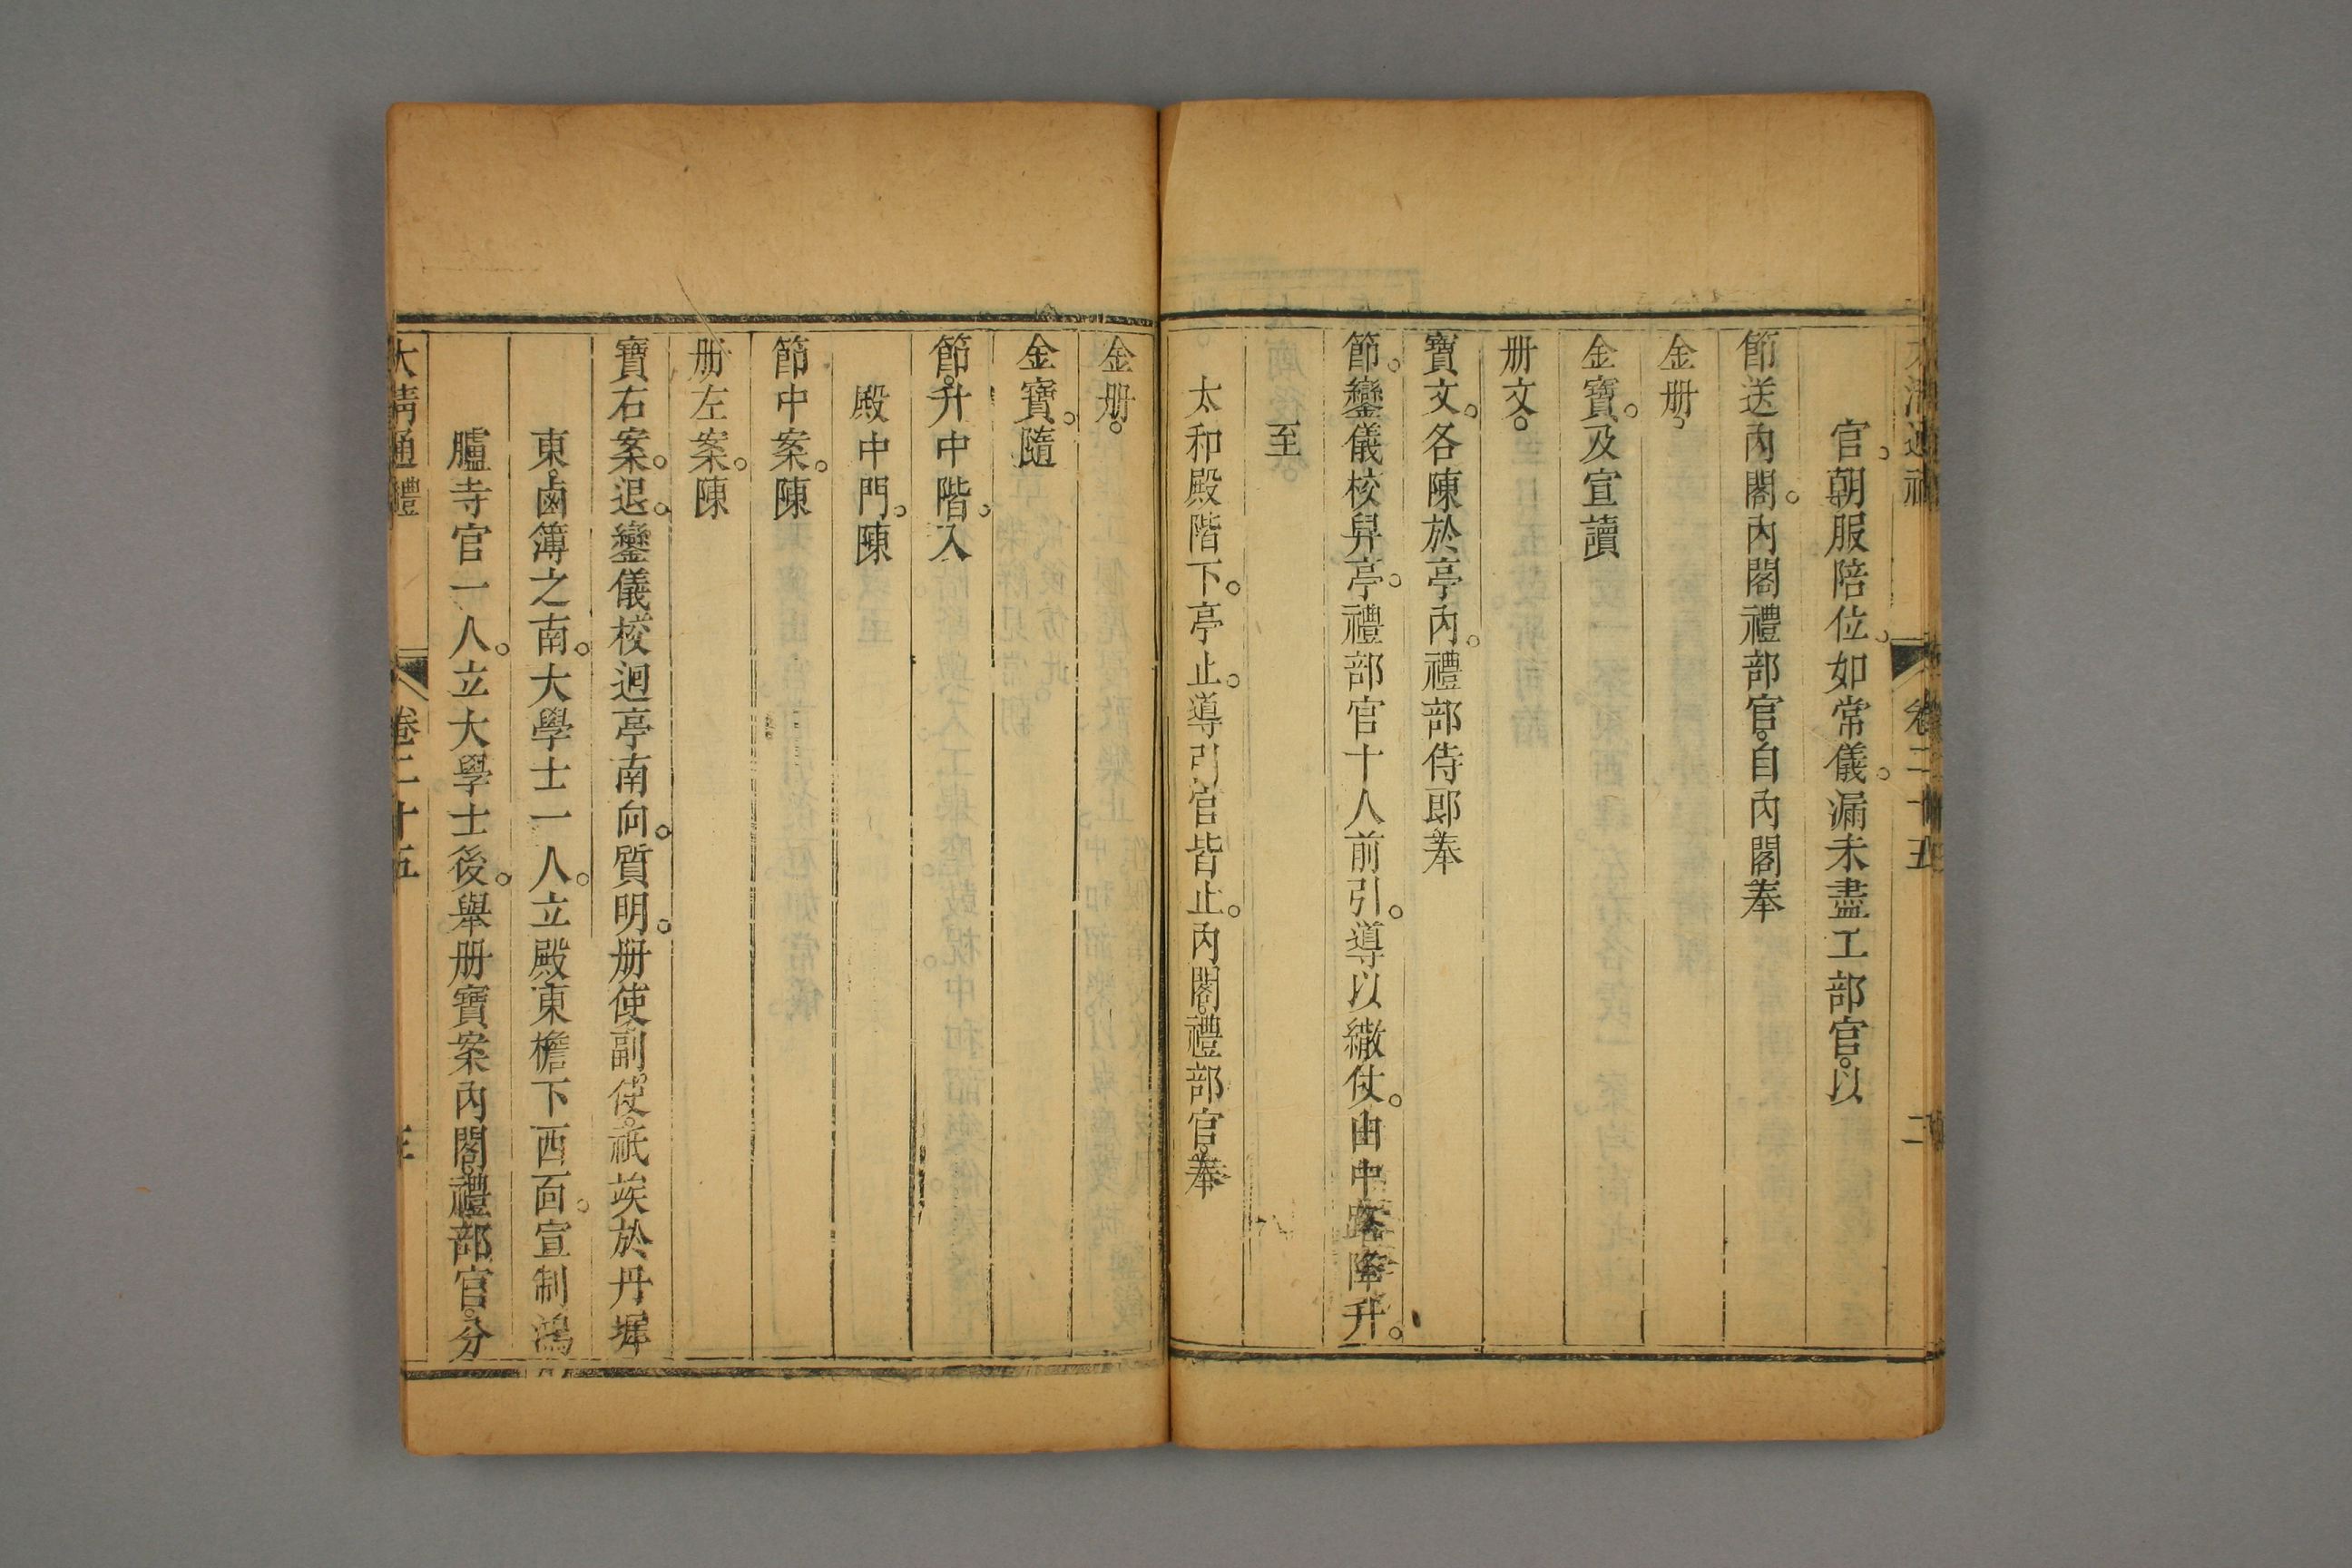 大清通禮 卷二十五 二
官。朝服陪位。如常儀。漏未盡工部官。以
節送內閣。內閣禮部官。自內閣奉
金册。
金寶。及宣讀
册文。
寶文。各陳於亭內。禮部侍郎奉
節。鑾儀校舁亭。禮部官十人前引。導以繖仗。由中路降升。
至
太和殿階下。亭止。導引官皆止。內閣。禮部官。奉
金册。
金寶。隨
節。升中階。入
殿中門。陳
節中案。陳
册左案。陳
寶右案。退。鑾儀校迴亭南向。質明。册使。副使。祇竢於丹墀
東。鹵簿之南。大學士一人。立殿東檐下西面。宣制鴻
臚寺官一人。立大學士後。舉册寶案內閣。禮部官。分
大清通禮 卷二十五 三